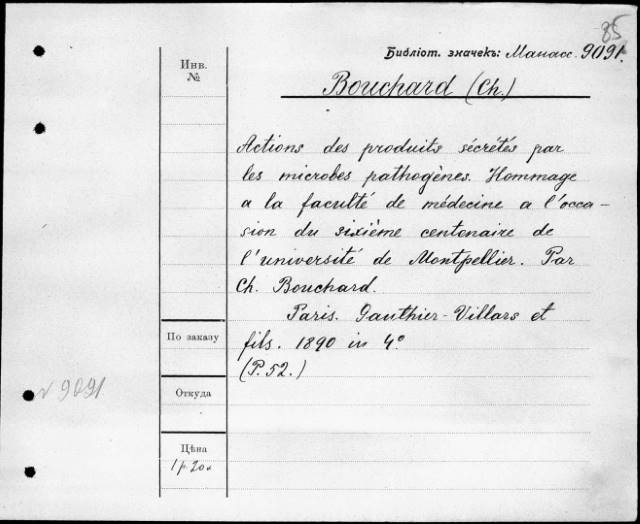 85
Библіот. значекъ: Манасс. 9091.
Инв.
№
Bouchard (Ch.)
Actions des produits sécrétés par
les microbes pathogènes. Hommage
a la faculté de médecine a l'occa-
sion du sixième centenaire de
l'université de Montpellier. Par
Ch. Bouchard.
Paris. Gauthier-Villars et
fils. 1890 in 4°
(P. 52.)
По заказу
9091
Откуда
Цѣна
1 р 20 к